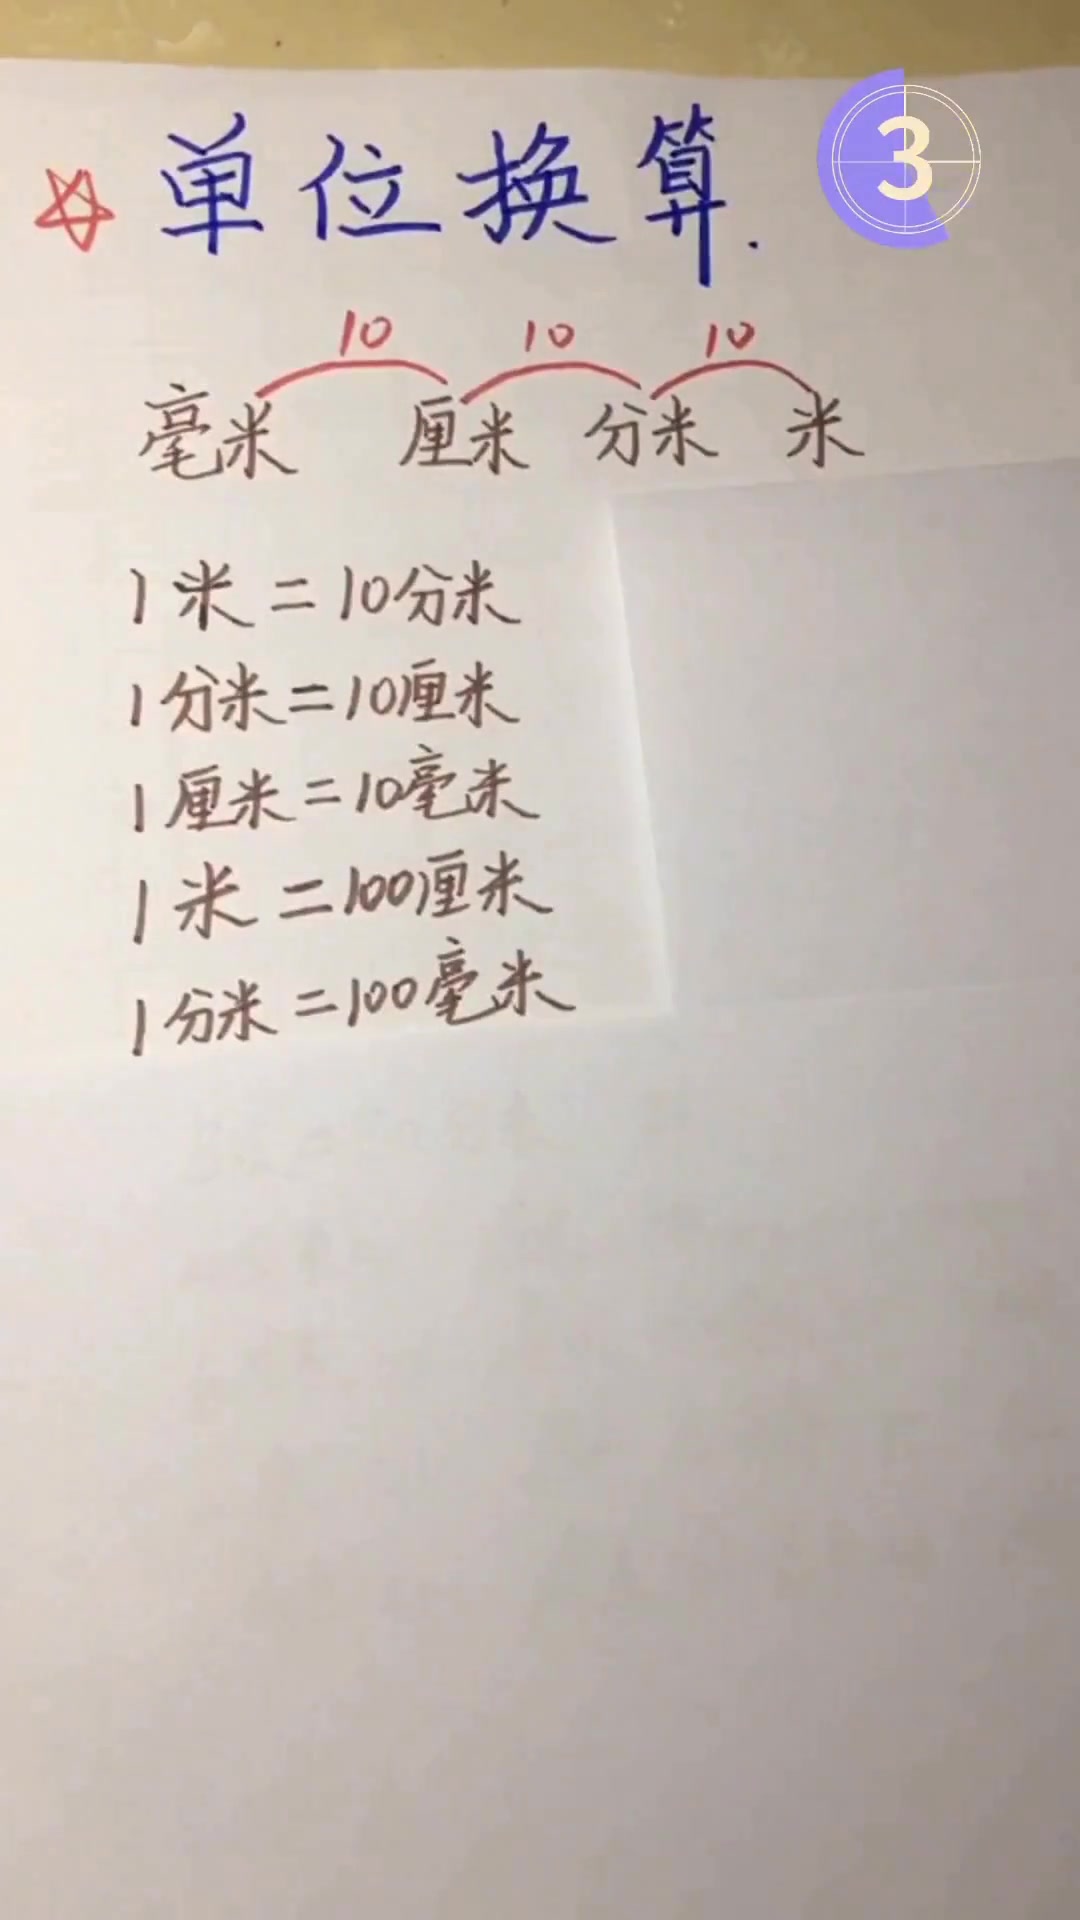 单位换算.
3
10 10 10
毫米 厘米 分米 米
1米=10分米
1分米=10厘米
1厘米=10毫米
1米=100厘米
1分米=100毫米